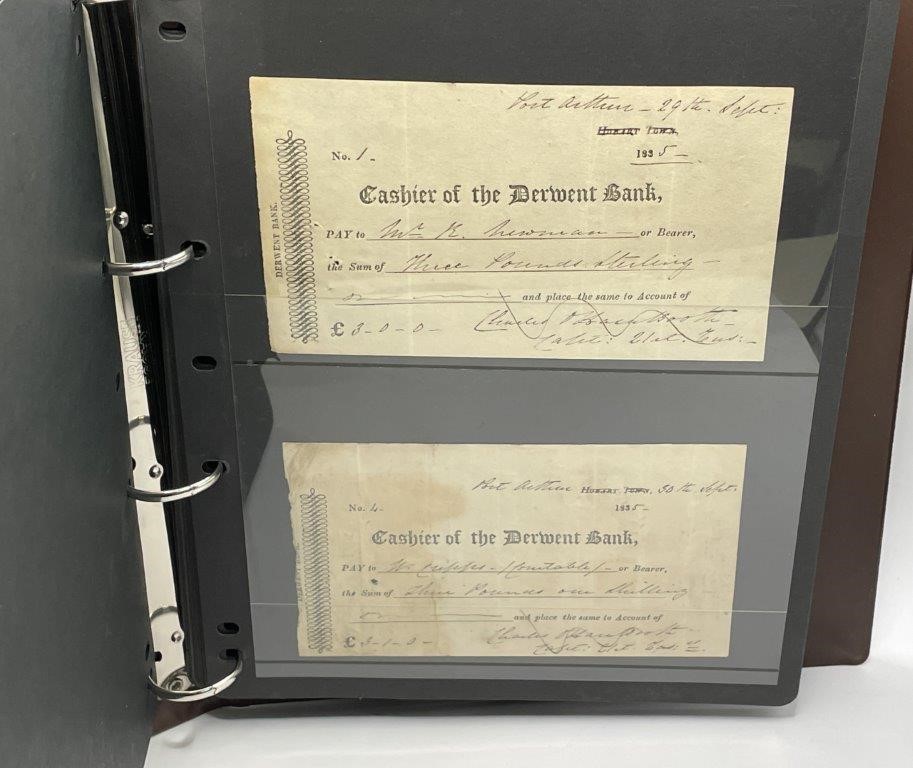 Port Arthur - 29th. Sept:
Hobart Town,
No. 1 -
1835 -
Cashier of the Derwent Bank,
DERWENT BANK.
PAY to Mr. R. Newman - or Bearer,
the Sum of Three Pounds Sterling -
and place the same to Account of
£ 3-0-0- Charles O'Hara Booth -
Capt: 21st. Fus: -
Port Arthur Hobart Town, 30th Sept:
No. 4 -
1835 -
Cashier of the Derwent Bank,
PAY to Wm Cripps - (Constable) - or Bearer,
the Sum of Three Pounds one Shilling -
and place the same to Account of
£ 3-1-0- Charles O'Hara Booth
Capt: 21st. Fus:
KRAUSE